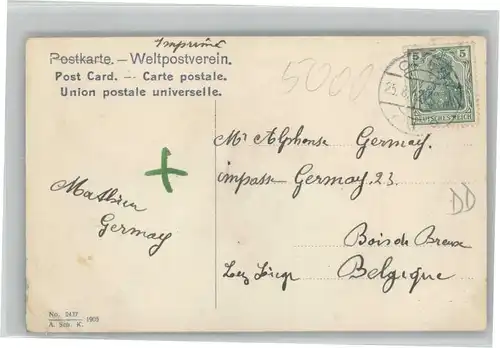 Imprimé
Postkarte. — Weltpostverein.
Post Card. — Carte postale.
Union postale universelle.
5000
5 5
DEUTSCHES REICH
25.
Mr Alphonse Germay.
impasse Germay. 23.
Mathieu
Germay
DD
Bois de Breux
Lez Liège
Belgique
No. 2437
A. Sch. K. 1903